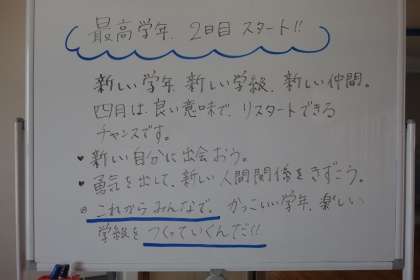 最高学年、2日目 スタート!!
新しい学年、新しい学級、新しい仲間。
四月は、良い意味で、リスタートできる
チャンスです。
・新しい自分に出会おう。
・勇気を出して、新しい人間関係をきずこう。
・これから みんなで、かっこいい学年、楽しい
学級を つくっていくんだ!!